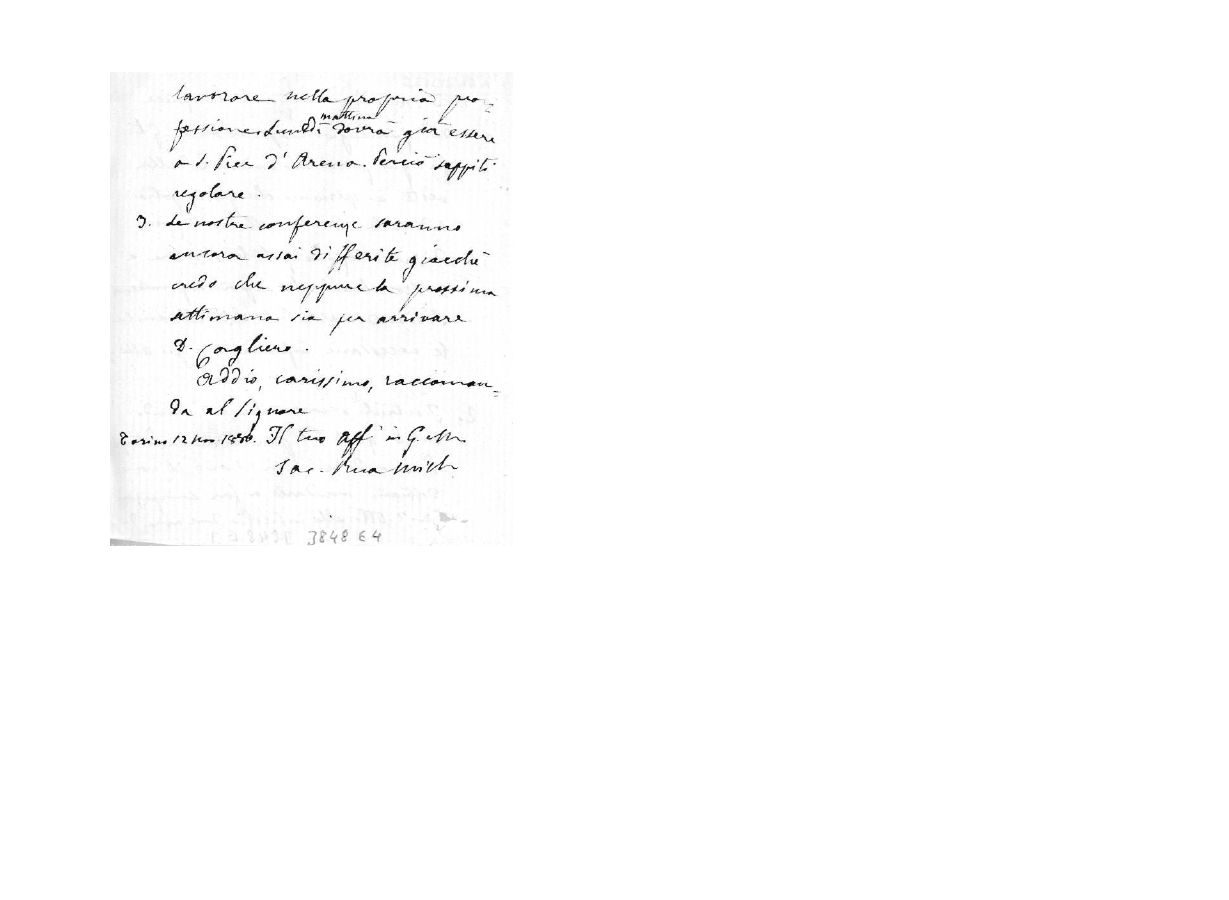 lavorare nella propria pro=
fessione. Lunedì mattina dovrà già essere
a S. Pier d'Arena. Perciò sappiti
regolare.
3. Le nostre conferenze saranno
ancora assai differite giacchè
credo che neppure la prossima
settimana sia per arrivare
D. Cagliero.
Addio, carissimo, raccoman=
da al Signore
Torino 12 Il tuo aff in G
Sac. Rua Mich
3848 E4